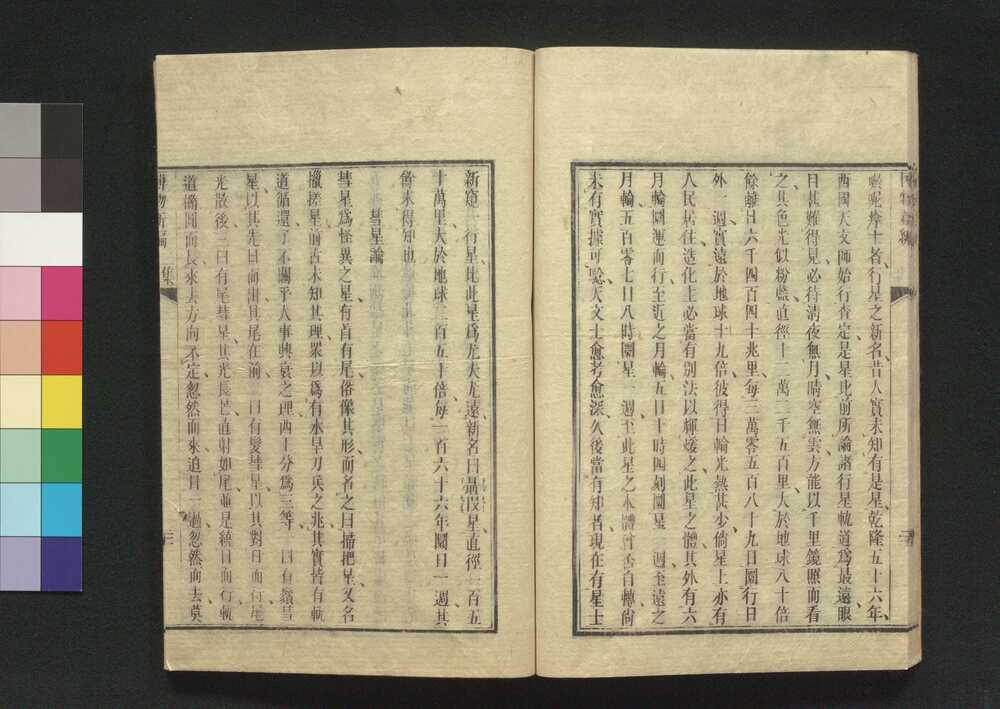 嘰呢摩士者行星之新名昔人實未知有是星乾隆五十六年
西國天文師始行査定是星比前所論諸行星軌道爲最遠眼
目甚難得見必待淸夜無月晴空無雲方能以千里鏡照而看
之其色光似粉藍直徑十二萬三千五百里大於地球八十倍
餘離日六千四百四十兆里每三萬零五百八十九日圜行日
外一週實遠於地球十九倍彼得日輪光熱甚少倘星上亦有
人民居住造化主必當有別法以輝煖之此星之體其外有六
月輪圜運而行至近之月輪五日十時四刻圜星一週至遠之
月輪五百零七日八時圜星一週至此星之本體曾否自轉尙
未有實據可騐天文士愈考愈深久後當有知者現在有星士
新窺一行星比此星爲尤大尤遠新名曰 星直徑一百五
十萬里大於地球二百五十倍每一百六十六年圜日一週其
餘未得知也
彗星論
彗星爲怪異之星有首有尾俗像其形而名之曰掃把星又名
攙搓星前古未知其理衆以爲有水旱刀兵之兆其實皆有軌
道循還了不關乎人事興衰之理西士分爲三等一曰有鬚彗
星以其先日而出其尾在前一曰有髮彗星以其對日而行尾
光散後三曰有尾彗星其光長芒直射如尾並是繞日而行軌
道橢圓而長來去方向不定忽然而來追日一過忽然而去莫
博物新編
二集
三